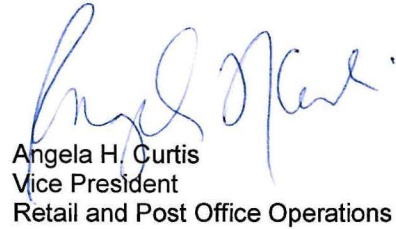 Angela H. Curtis
Vice President
Retail and Post Office Operations